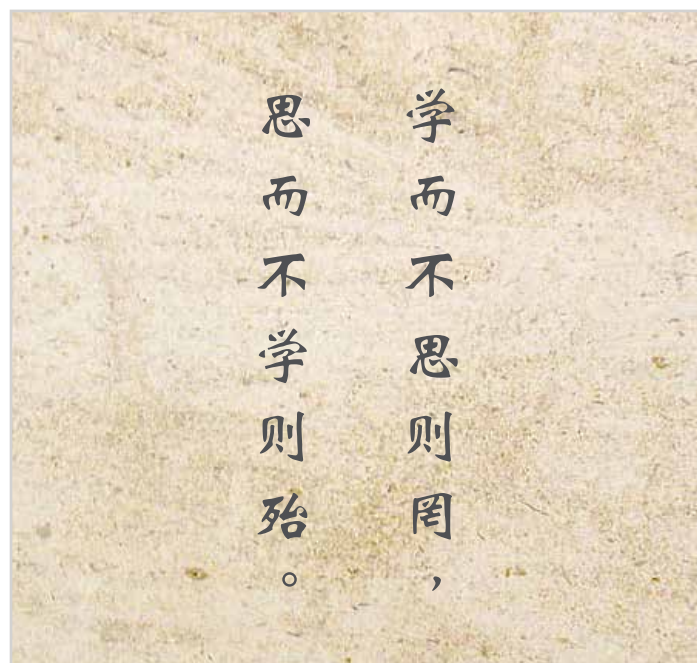 学而不思则罔，
思而不学则殆。